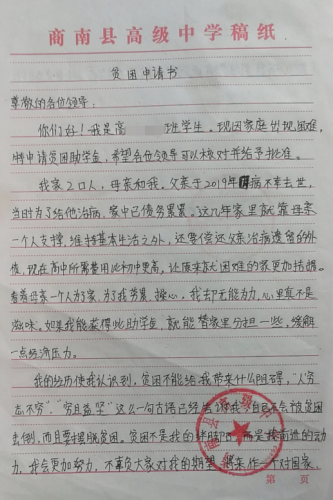 商南县高级中学稿纸
贫困申请书
尊敬的各位领导:
你们好!我是高 班学生。现因家庭出现困难,
特申请贫困助学金,希望各位领导可以核对并给予批准。
我家2口人,母亲和我。父亲于2019年 病不幸去世,
当时为了给他治病,家中已债务累累。这几年家里就靠母亲
一个人支撑,维持基本生活之外,还要偿还父亲治病遗留的外
债,现在高中所需费用比初中更高,让原来就困难的家更加拮据。
看着母亲一个人为了家,为了我劳累、操心,我却无能为力,心里真不是
滋味。如果我能获得此助学金,就能替家里分担一些,缓解
一点经济压力。
我的经历使我认识到,贫困不能给我带来什么阻碍,“人穷
志不穷”、“穷且益坚”这么一句古语已经告诉我们自己不会被贫困
击倒,而且要摆脱贫困。贫困不是我的绊脚石,而是我前进的动
力,我会更加努力,不辜负大家对我的期望,将来作一个对国家、
第 页